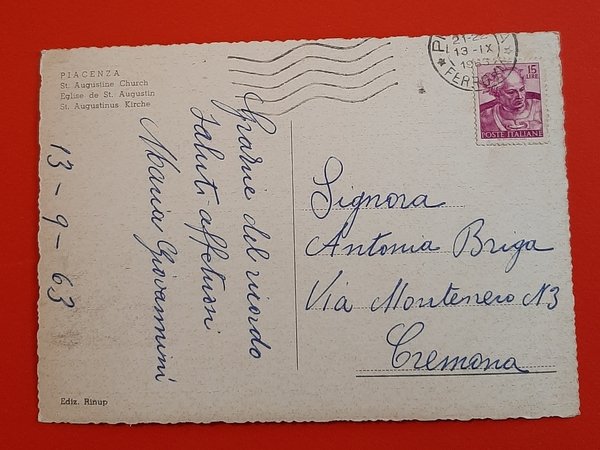 PIACENZA
St. Augustine Church
Eglise de St. Augustin
St. Augustinus Kirche
13-9-63
Grazie del ricordo
saluti affettuosi
Maria Giovannini
21-22
13-IX
1963
FERROVIA
15
LIRE
POSTE ITALIANE
Signora
Antonia Briga
Via Montenero N3
Cremona
Ediz. Rinup